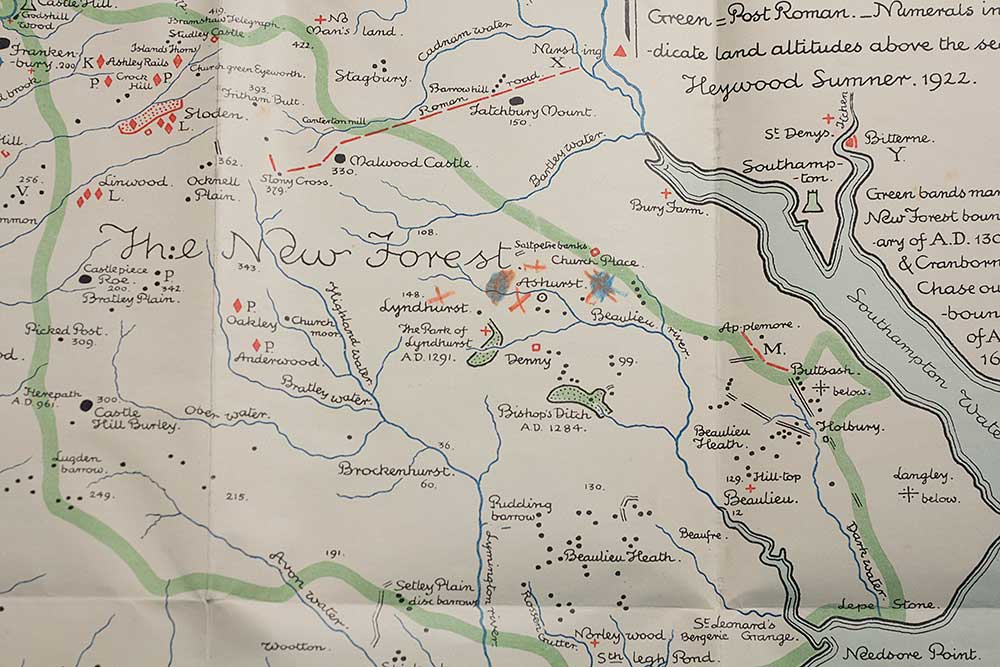 Castle Hill.
Godshill
Wood
419.
Bramshaw Telegraph
Studley Castle
422.
No
Man's land.
Cadnam water
Nursling
X.
Green = Post Roman. Numerals in
-dicate land altitudes above the se
Heywood Sumner. 1922.
Franken
-bury. 200
Islands Thorns
K Ashley Rails
P. Crock P.
Hill
Church green Eyeworth.
Stagbury.
Barrowhill
Roman road
Tatchbury Mount.
150.
393.
Fritham Butt.
Canterton mill
Sloden.
L.
Hill
362.
Malwood Castle.
330.
Stony Cross.
379.
Bartley water.
St Denys.
Itchen
Bitterne.
Y.
Southamp-
-ton.
256.
V.
Linwood.
L.
Ocknell
Plain.
mmon
Bury Farm.
Green bands mar
New Forest boun
-ary of A.D. 130
& Cranborn
Chase ou
-boun
of A
16
108.
The New Forest.
Saltpetre banks
Church Place.
Ashurst.
343.
Castle piece
Roe.
200.
P.
342
Bratley Plain.
Highland water
148.
Lyndhurst
Beaulieu river
Southampton Water
Picked Post.
309.
P.
Oakley
Church moor
P.
Anderwood.
The Park of
Lyndhurst
A.D. 1291.
Denny
99.
Applemore.
M.
Buttsash.
below.
Herepath
A.D. 961.
300
Castle
Hill Burley.
Bratley water.
Ober water.
Bishop's Ditch
A.D. 1284.
Beaulieu
Heath.
Holbury.
36.
Lugden
barrow.
249.
215.
Brockenhurst.
60.
129. Hill-top
Beaulieu.
12
Langley.
below.
130.
Pudding
barrow
Beaulieu Heath.
Beaufre.
Dark water
Avon water.
191.
Setley Plain
disc barrows
Lymington river
Rossen Gutter.
Lepe Stone.
Wootton.
Norley wood
Sth legh Pond.
St Leonard's
Bergerie Grange.
Needsore Point.